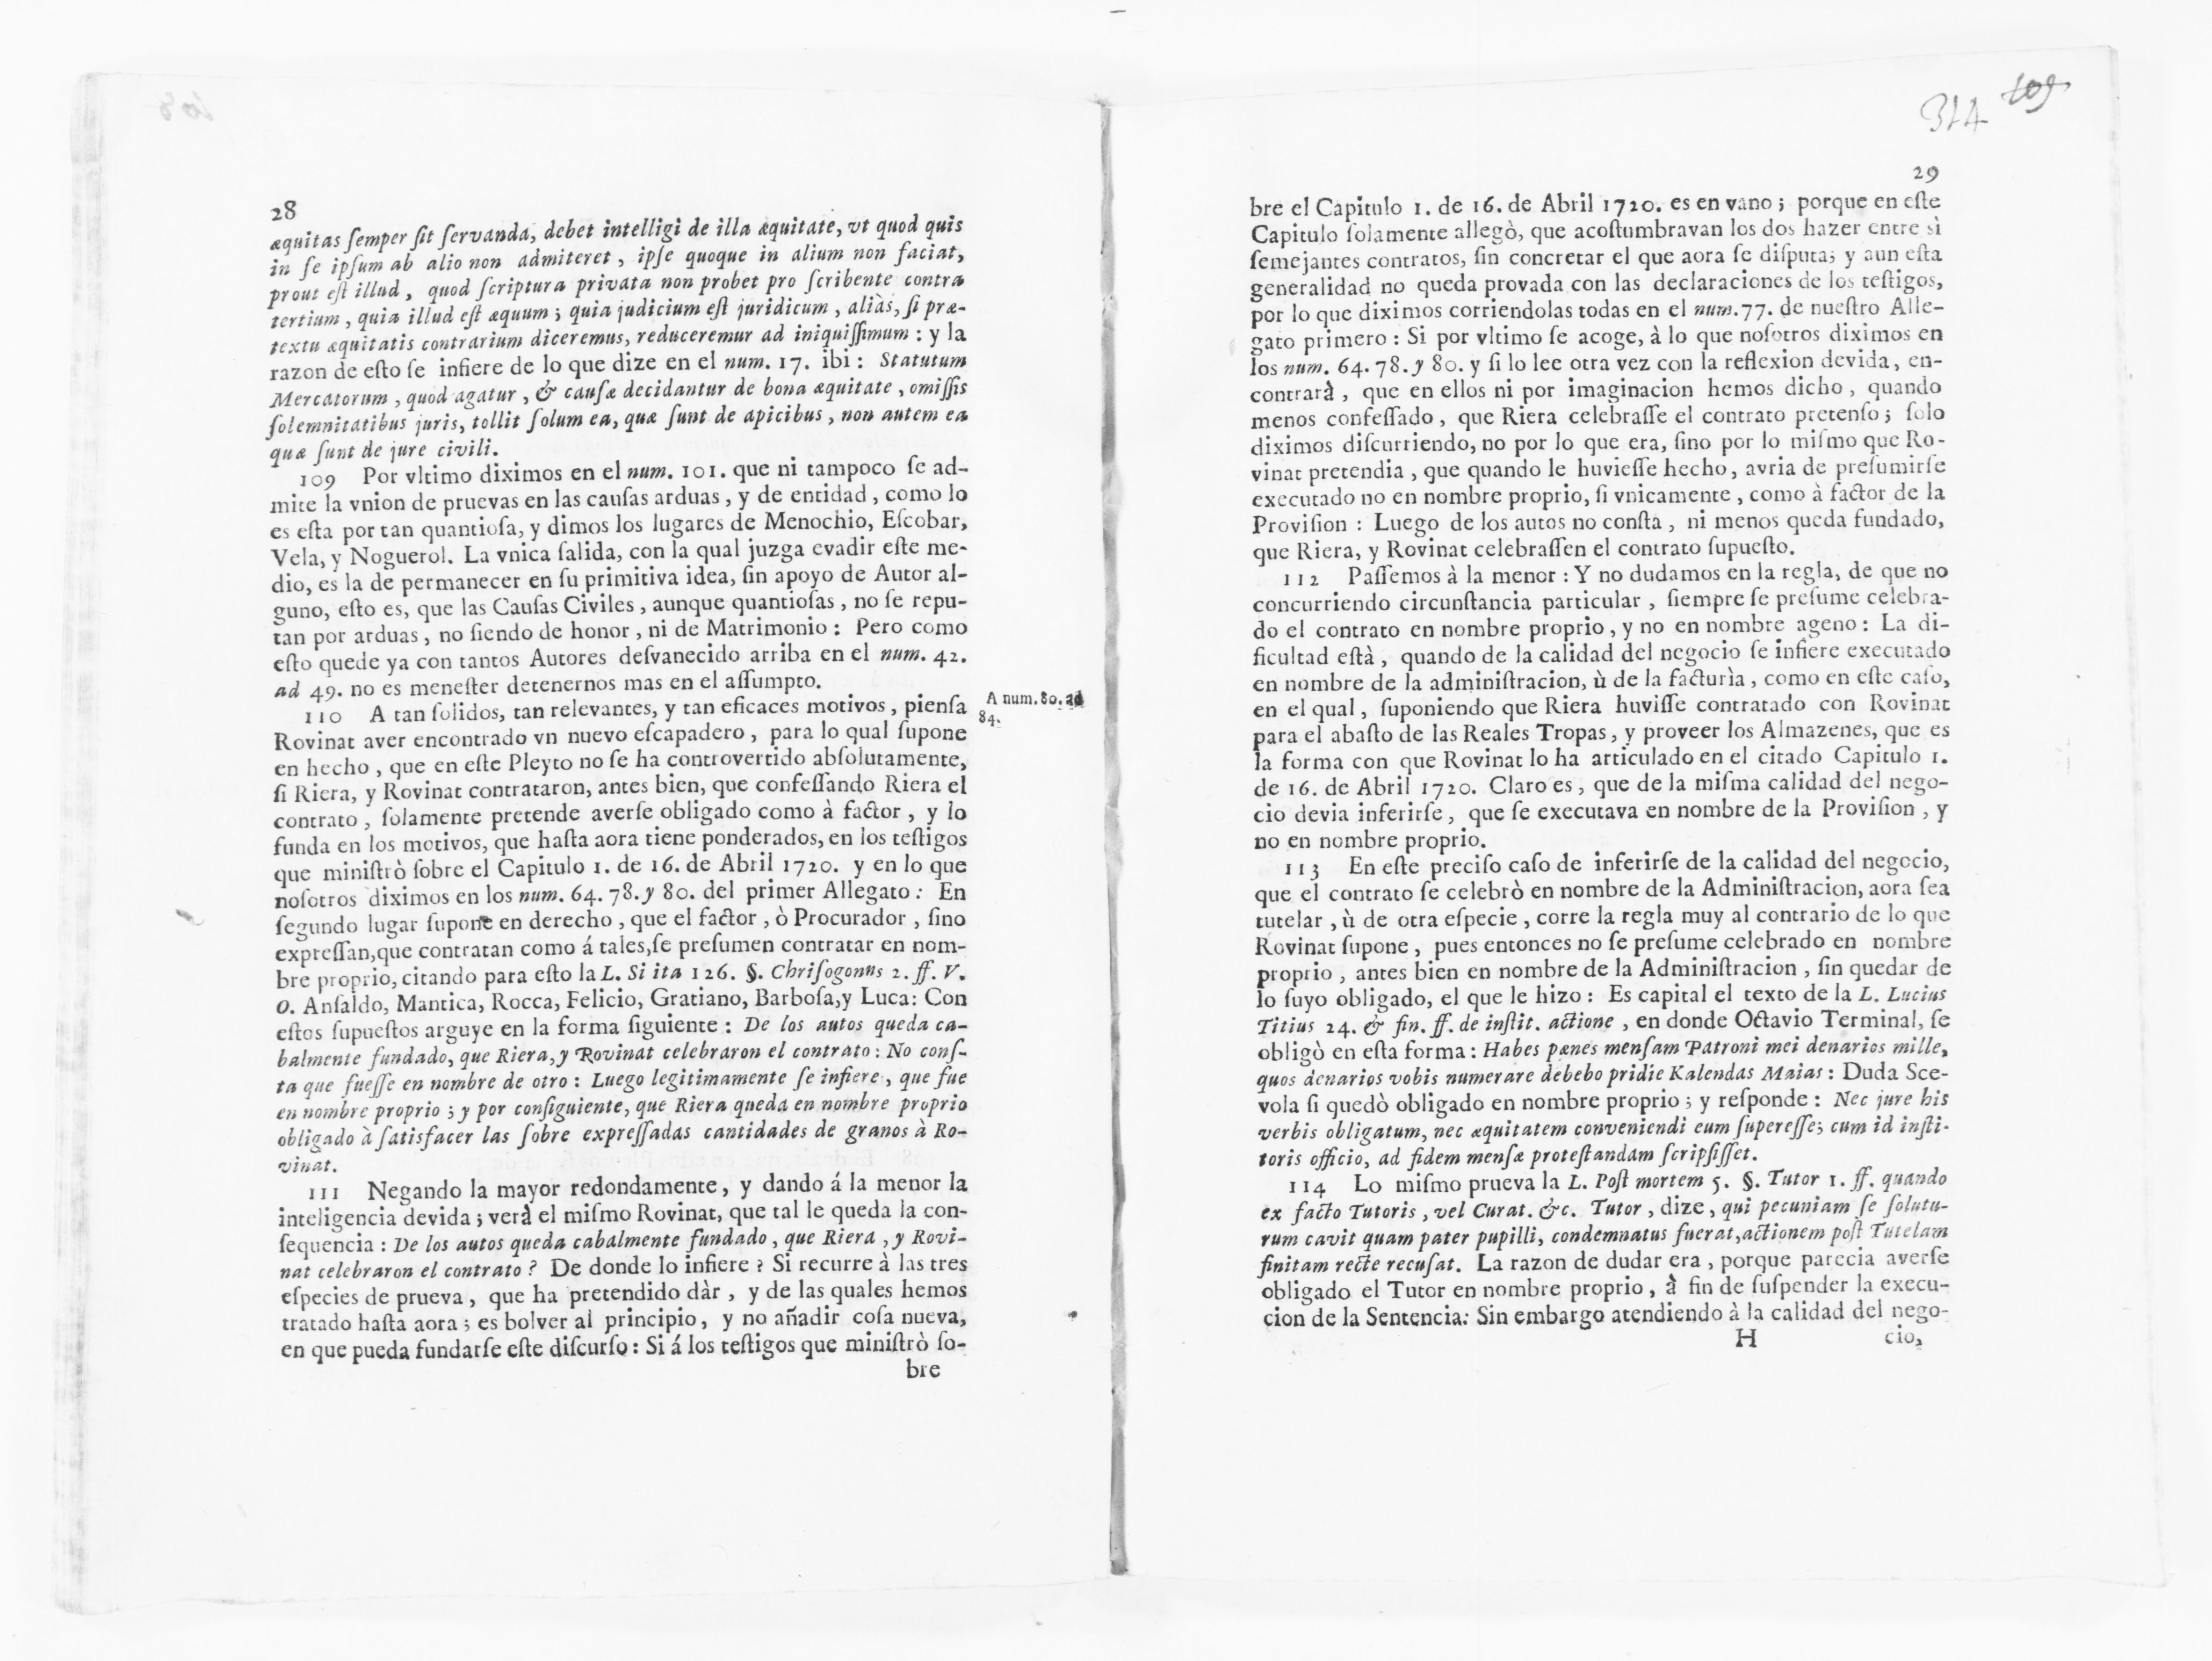 28
æquitas ſemper ſit ſervanda, debet intelligi de illa æquitate, vt quod quis
in ſe ipſum ab alio non admiteret, ipſe quoque in alium non faciat,
prout eſt illud, quod ſcriptura privata non probet pro ſcribente contra
tertium, quia illud eſt æquum; quia judicium eſt juridicum, aliàs, ſi præ-
textu æquitatis contrarium diceremus, reduceremur ad iniquiſſimum: y la
razon de eſto ſe infiere de lo que dize en el num. 17. ibi: Statutum
Mercatorum, quod agatur, & cauſæ decidantur de bona æquitate, omiſſis
ſolemnitatibus juris, tollit ſolum ea, quæ ſunt de apicibus, non autem ea
quæ ſunt de jure civili.
109 Por vltimo diximos en el num. 101. que ni tampoco ſe ad-
mite la vnion de pruevas en las cauſas arduas, y de entidad, como lo
es eſta por tan quantioſa, y dimos los lugares de Menochio, Eſcobar,
Vela, y Noguerol. La vnica ſalida, con la qual juzga evadir eſte me-
dio, es la de permanecer en ſu primitiva idea, ſin apoyo de Autor al-
guno, eſto es, que las Cauſas Civiles, aunque quantioſas, no ſe repu-
tan por arduas, no ſiendo de honor, ni de Matrimonio: Pero como
eſto quede ya con tantos Autores deſvanecido arriba en el num. 42.
ad 49. no es meneſter detenernos mas en el aſſumpto.
110 A tan ſolidos, tan relevantes, y tan eficaces motivos, pienſa
Rovinat aver encontrado vn nuevo eſcapadero, para lo qual ſupone
en hecho, que en eſte Pleyto no ſe ha controvertido abſolutamente,
ſi Riera, y Rovinat contrataron, antes bien, que confeſſando Riera el
contrato, ſolamente pretende averſe obligado como à factor, y lo
funda en los motivos, que haſta aora tiene ponderados, en los teſtigos
que miniſtrò ſobre el Capitulo 1. de 16. de Abril 1720. y en lo que
noſotros diximos en los num. 64. 78. y 80. del primer Allegato: En
ſegundo lugar ſupone en derecho, que el factor, ò Procurador, ſino
expreſſan, que contratan como á tales, ſe preſumen contratar en nom-
bre proprio, citando para eſto la L. Si ita 126. §. Chriſogonus 2. ff. V.
O. Anſaldo, Mantica, Rocca, Felicio, Gratiano, Barboſa, y Luca: Con
eſtos ſupueſtos arguye en la forma ſiguiente: De los autos queda ca-
balmente fundado, que Riera, y Rovinat celebraron el contrato: No conſ-
ta que fueſſe en nombre de otro: Luego legitimamente ſe infiere, que fue
en nombre proprio; y por conſiguiente, que Riera queda en nombre proprio
obligado à ſatisfacer las ſobre expreſſadas cantidades de granos à Ro-
vinat.
111 Negando la mayor redondamente, y dando á la menor la
inteligencia devida; verà el miſmo Rovinat, que tal le queda la con-
ſequencia: De los autos queda cabalmente fundado, que Riera, y Rovi-
nat celebraron el contrato? De donde lo infiere? Si recurre à las tres
eſpecies de prueva, que ha pretendido dàr, y de las quales hemos
tratado haſta aora; es bolver al principio, y no añadir coſa nueva,
en que pueda fundarſe eſte diſcurſo: Si á los teſtigos que miniſtrò ſo-
bre
A num. 80. ad
84.
314 109
29
bre el Capitulo 1. de 16. de Abril 1720. es en vano; porque en eſte
Capitulo ſolamente allegò, que acoſtumbravan los dos hazer entre sì
ſemejantes contratos, ſin concretar el que aora ſe diſputa; y aun eſta
generalidad no queda provada con las declaraciones de los teſtigos,
por lo que diximos corriendolas todas en el num. 77. de nueſtro Alle-
gato primero: Si por vltimo ſe acoge, à lo que noſotros diximos en
los num. 64. 78. y 80. y ſi lo lee otra vez con la reflexion devida, en-
contrarà, que en ellos ni por imaginacion hemos dicho, quando
menos confeſſado, que Riera celebraſſe el contrato pretenſo; ſolo
diximos diſcurriendo, no por lo que era, ſino por lo miſmo que Ro-
vinat pretendia, que quando le huvieſſe hecho, avria de preſumirſe
executado no en nombre proprio, ſi vnicamente, como à factor de la
Proviſion: Luego de los autos no conſta, ni menos queda fundado,
que Riera, y Rovinat celebraſſen el contrato ſupueſto.
112 Paſſemos à la menor: Y no dudamos en la regla, de que no
concurriendo circunſtancia particular, ſiempre ſe preſume celebra-
do el contrato en nombre proprio, y no en nombre ageno: La di-
ficultad eſtà, quando de la calidad del negocio ſe infiere executado
en nombre de la adminiſtracion, ù de la facturìa, como en eſte caſo,
en el qual, ſuponiendo que Riera huviſſe contratado con Rovinat
para el abaſto de las Reales Tropas, y proveer los Almazenes, que es
la forma con que Rovinat lo ha articulado en el citado Capitulo 1.
de 16. de Abril 1720. Claro es, que de la miſma calidad del nego-
cio devia inferirſe, que ſe executava en nombre de la Proviſion, y
no en nombre proprio.
113 En eſte preciſo caſo de inferirſe de la calidad del negocio,
que el contrato ſe celebrò en nombre de la Adminiſtracion, aora ſea
tutelar, ù de otra eſpecie, corre la regla muy al contrario de lo que
Rovinat ſupone, pues entonces no ſe preſume celebrado en nombre
proprio, antes bien en nombre de la Adminiſtracion, ſin quedar de
lo ſuyo obligado, el que le hizo: Es capital el texto de la L. Lucius
Titius 24. & fin. ff. de inſtit. actione, en donde Octavio Terminal, ſe
obligò en eſta forma: Habes pænes menſam Patroni mei denarios mille,
quos denarios vobis numerare debebo pridie Kalendas Maias: Duda Sce-
vola ſi quedò obligado en nombre proprio; y reſponde: Nec jure his
verbis obligatum, nec æquitatem conveniendi eum ſupereſſe; cum id inſti-
toris officio, ad fidem menſæ proteſtandam ſcripſiſſet.
114 Lo miſmo prueva la L. Poſt mortem 5. §. Tutor 1. ff. quando
ex facto Tutoris, vel Curat. &c. Tutor, dize, qui pecuniam ſe ſolutu-
rum cavit quam pater pupilli, condemnatus fuerat, actionem poſt Tutelam
finitam recte recuſat. La razon de dudar era, porque parecia averſe
obligado el Tutor en nombre proprio, à fin de ſuſpender la execu-
cion de la Sentencia: Sin embargo atendiendo à la calidad del nego-
H cio,